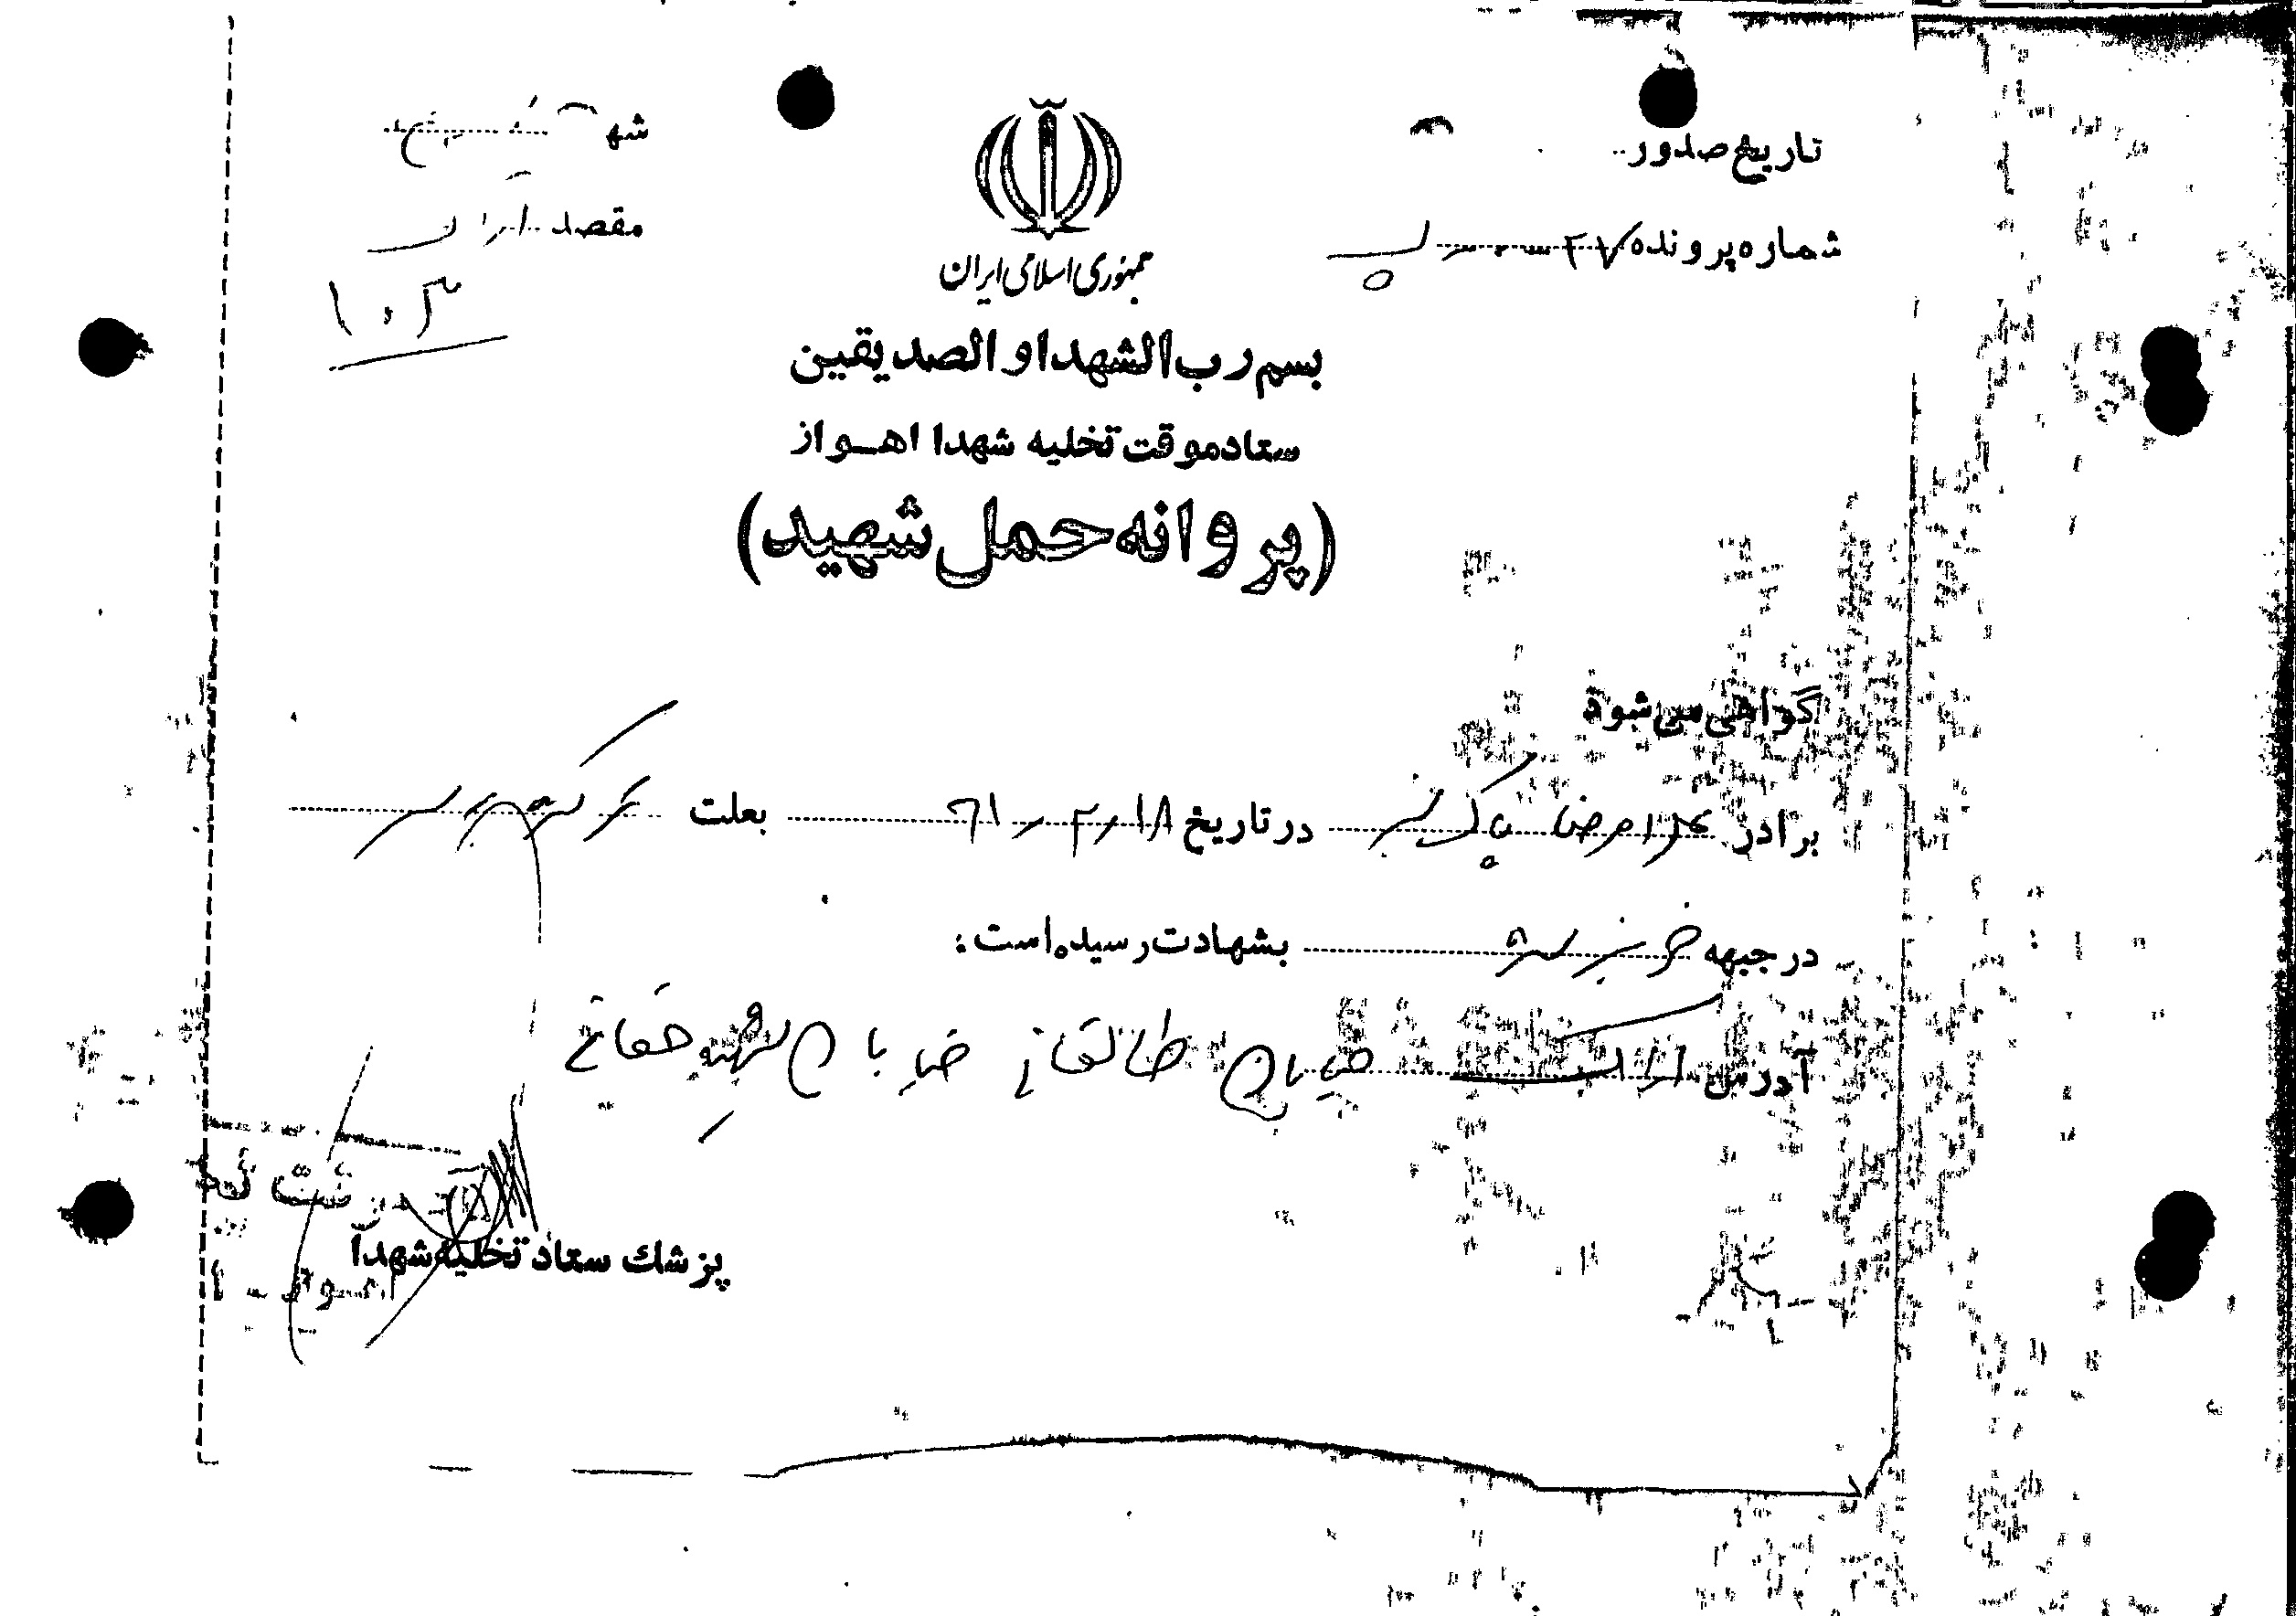 تاریخ صدور
شماره پرونده ۲۷
مقصد اراک
۱۰۳
جمهوری اسلامی ایران
بسم رب الشهدا و الصدیقین
ستاد موقت تخلیه شهدا اهواز
(پروانه حمل شهید)
گواهی می شود
برادر غلامرضا پاک در تاریخ ۱۸ ر ۲ ر ۶۱ بعلت ترکش
در جبهه بشهادت رسیده است:
آدرس اراک خیابان طالقانی خیابان شهید حقانی
پزشک ستاد تخلیه شهدا